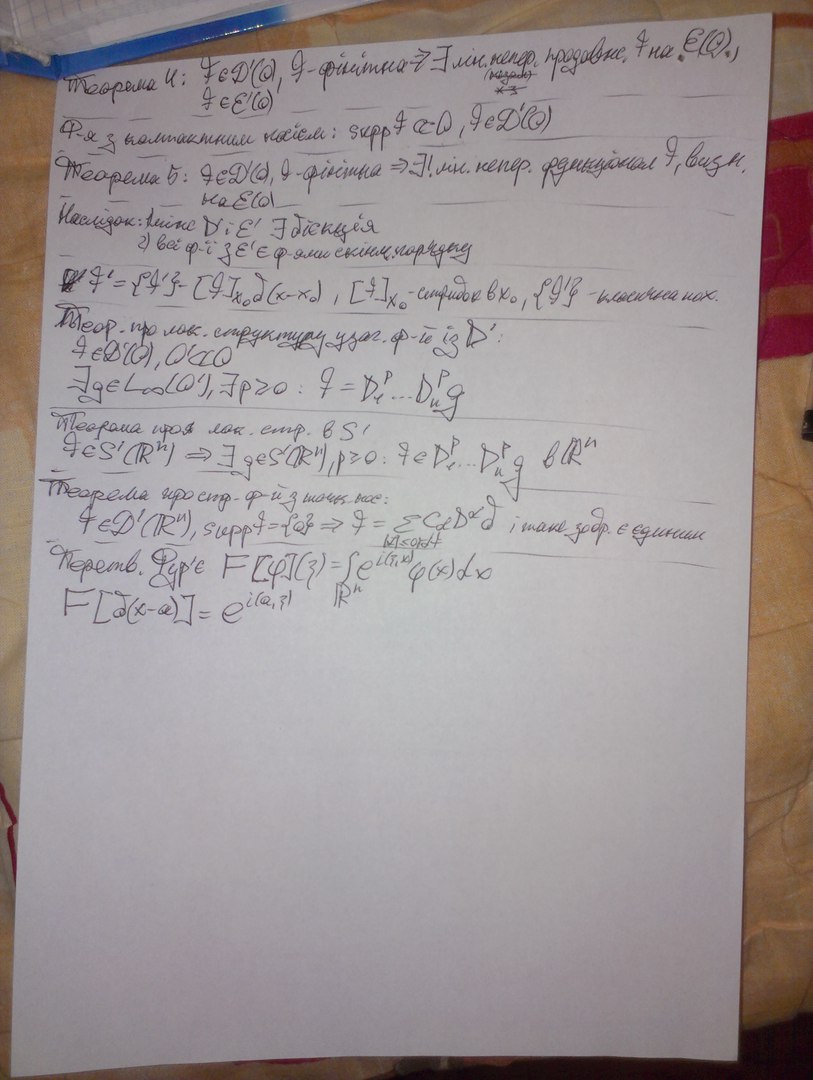 Теорема 4: f∈D'(O), f-фінітна ⇒ ∃ лін. непер. продовж. f на E(O),
f∈E'(O)
Ф-я з компактним носієм: supp f ⊂⊂ O, f∈D'(O)
Теорема 5: f∈D'(O), f-фінітна ⇒ ∃! лін. непер. функціонал f, визн.
на E(O)
Наслідок: 1) між D' і E' ∃ бієкція
2) всі ф-ії з E' є ф-ями скінч. порядку
f' = {f'} - [f]x₀ δ(x-x₀), [f]x₀ - стрибок в x₀, {f'} - класична пох.
Теор. про лок. структуру узаг. ф-ії із D':
f∈D'(O), O'⊂⊂O
∃g∈L∞(O'), ∃p≥0: f = D₁ᵖ...Dₙᵖ g
Теорема про лок. стр. в S'
f∈S'(ℝⁿ) ⇒ ∃g∈S'(ℝⁿ), p≥0: f∈D₁ᵖ...Dₙᵖ g в ℝⁿ
Теорема про стр. ф-ії з точк. нос.:
f∈D'(ℝⁿ), supp f={0} ⇒ f = Σ CαD^α δ і таке зобр. є єдиним
Перетв. Фур'є F[φ](ξ) = ∫ e^{i(ξ,x)} φ(x)dx
ℝⁿ
F[δ(x-a)] = e^{i(a,ξ)}